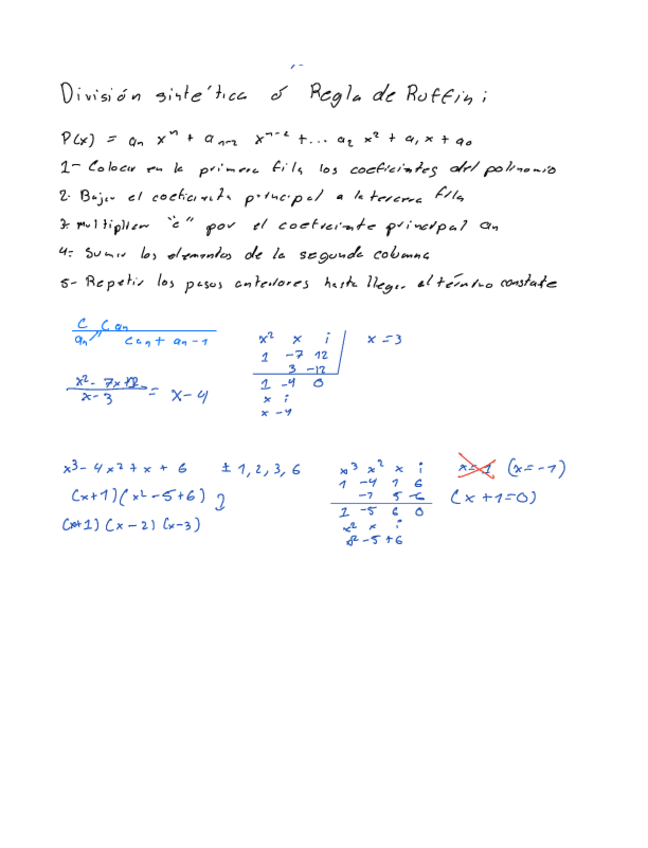 División sintética ó Regla de Ruffini
P(x) = aₙ xⁿ + aₙ₋₁ xⁿ⁻¹ +... a₂ x² + a₁ x + a₀
1- Colocar en la primera fila los coeficientes del polinomio
2- Bajar el coeficiente principal a la tercera fila
3- multiplicar "c" por el coeficiente principal an
4- Sumar los elementos de la segunda columna
5- Repetir los pasos anteriores hasta llegar al término constate
C Can
an can + an-1
x² x i x = 3
1 -7 12
3 -12
1 -4 0
x i
x -4
x² - 7x+12 / x-3 = x-4
x³- 4x²+x + 6 ± 1, 2, 3, 6
(x+1)(x²-5+6)
(x+1)(x-2)(x-3)
x³ x² x i x=1 (x=-1)
1 -4 1 6 (x+1=0)
-1 5 -6
1 -5 6 0
x² x i
-5 +6